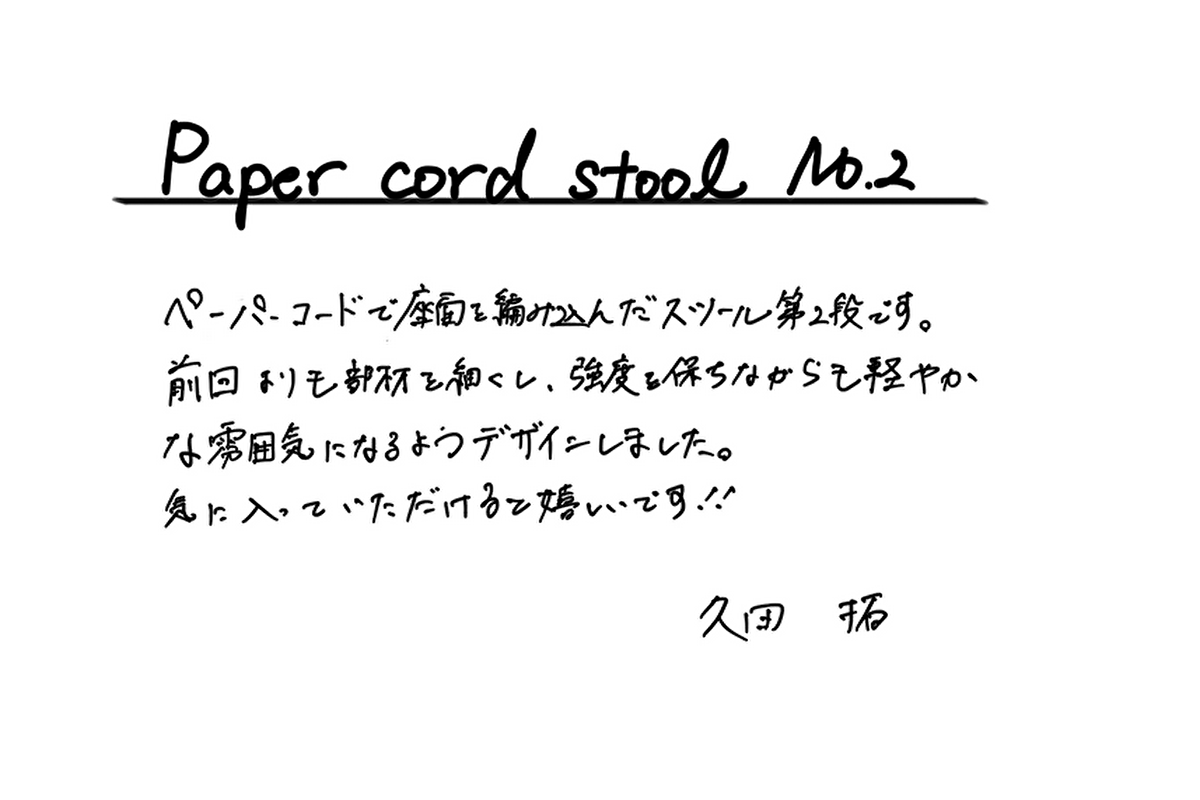 Paper cord stool No.2
ペーパーコードで座面を編み込んだスツール第2段です。
前回よりも部材を細くし、強度を保ちながらも軽やか
な雰囲気になるようデザインしました。
気に入っていただけると嬉しいです!!
久田 拓